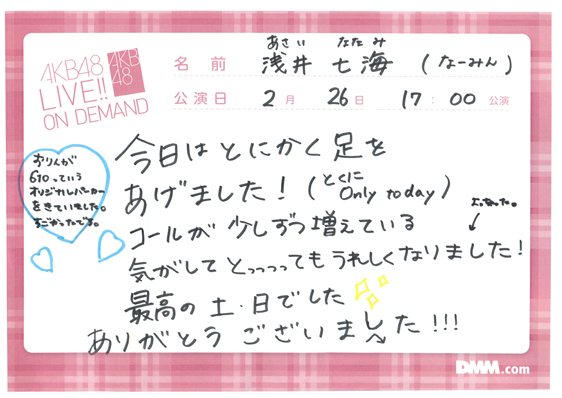 AKB48
LIVE!!
ON DEMAND
AKB
48
あさい ななみ
名前 浅井 七海 (なーみん)
公演日 2月 26日 17:00 公演
おりんが
610っていう
オリジナルパーカー
をきていました。
すごかったです。
今日はとにかく足を
あげました!(とくに Only today)
コールが少しずつ増えている
気がしてとっっっってもうれしくなりました!
最高の土・日でした
ありがとうございました!!!
DMM.com